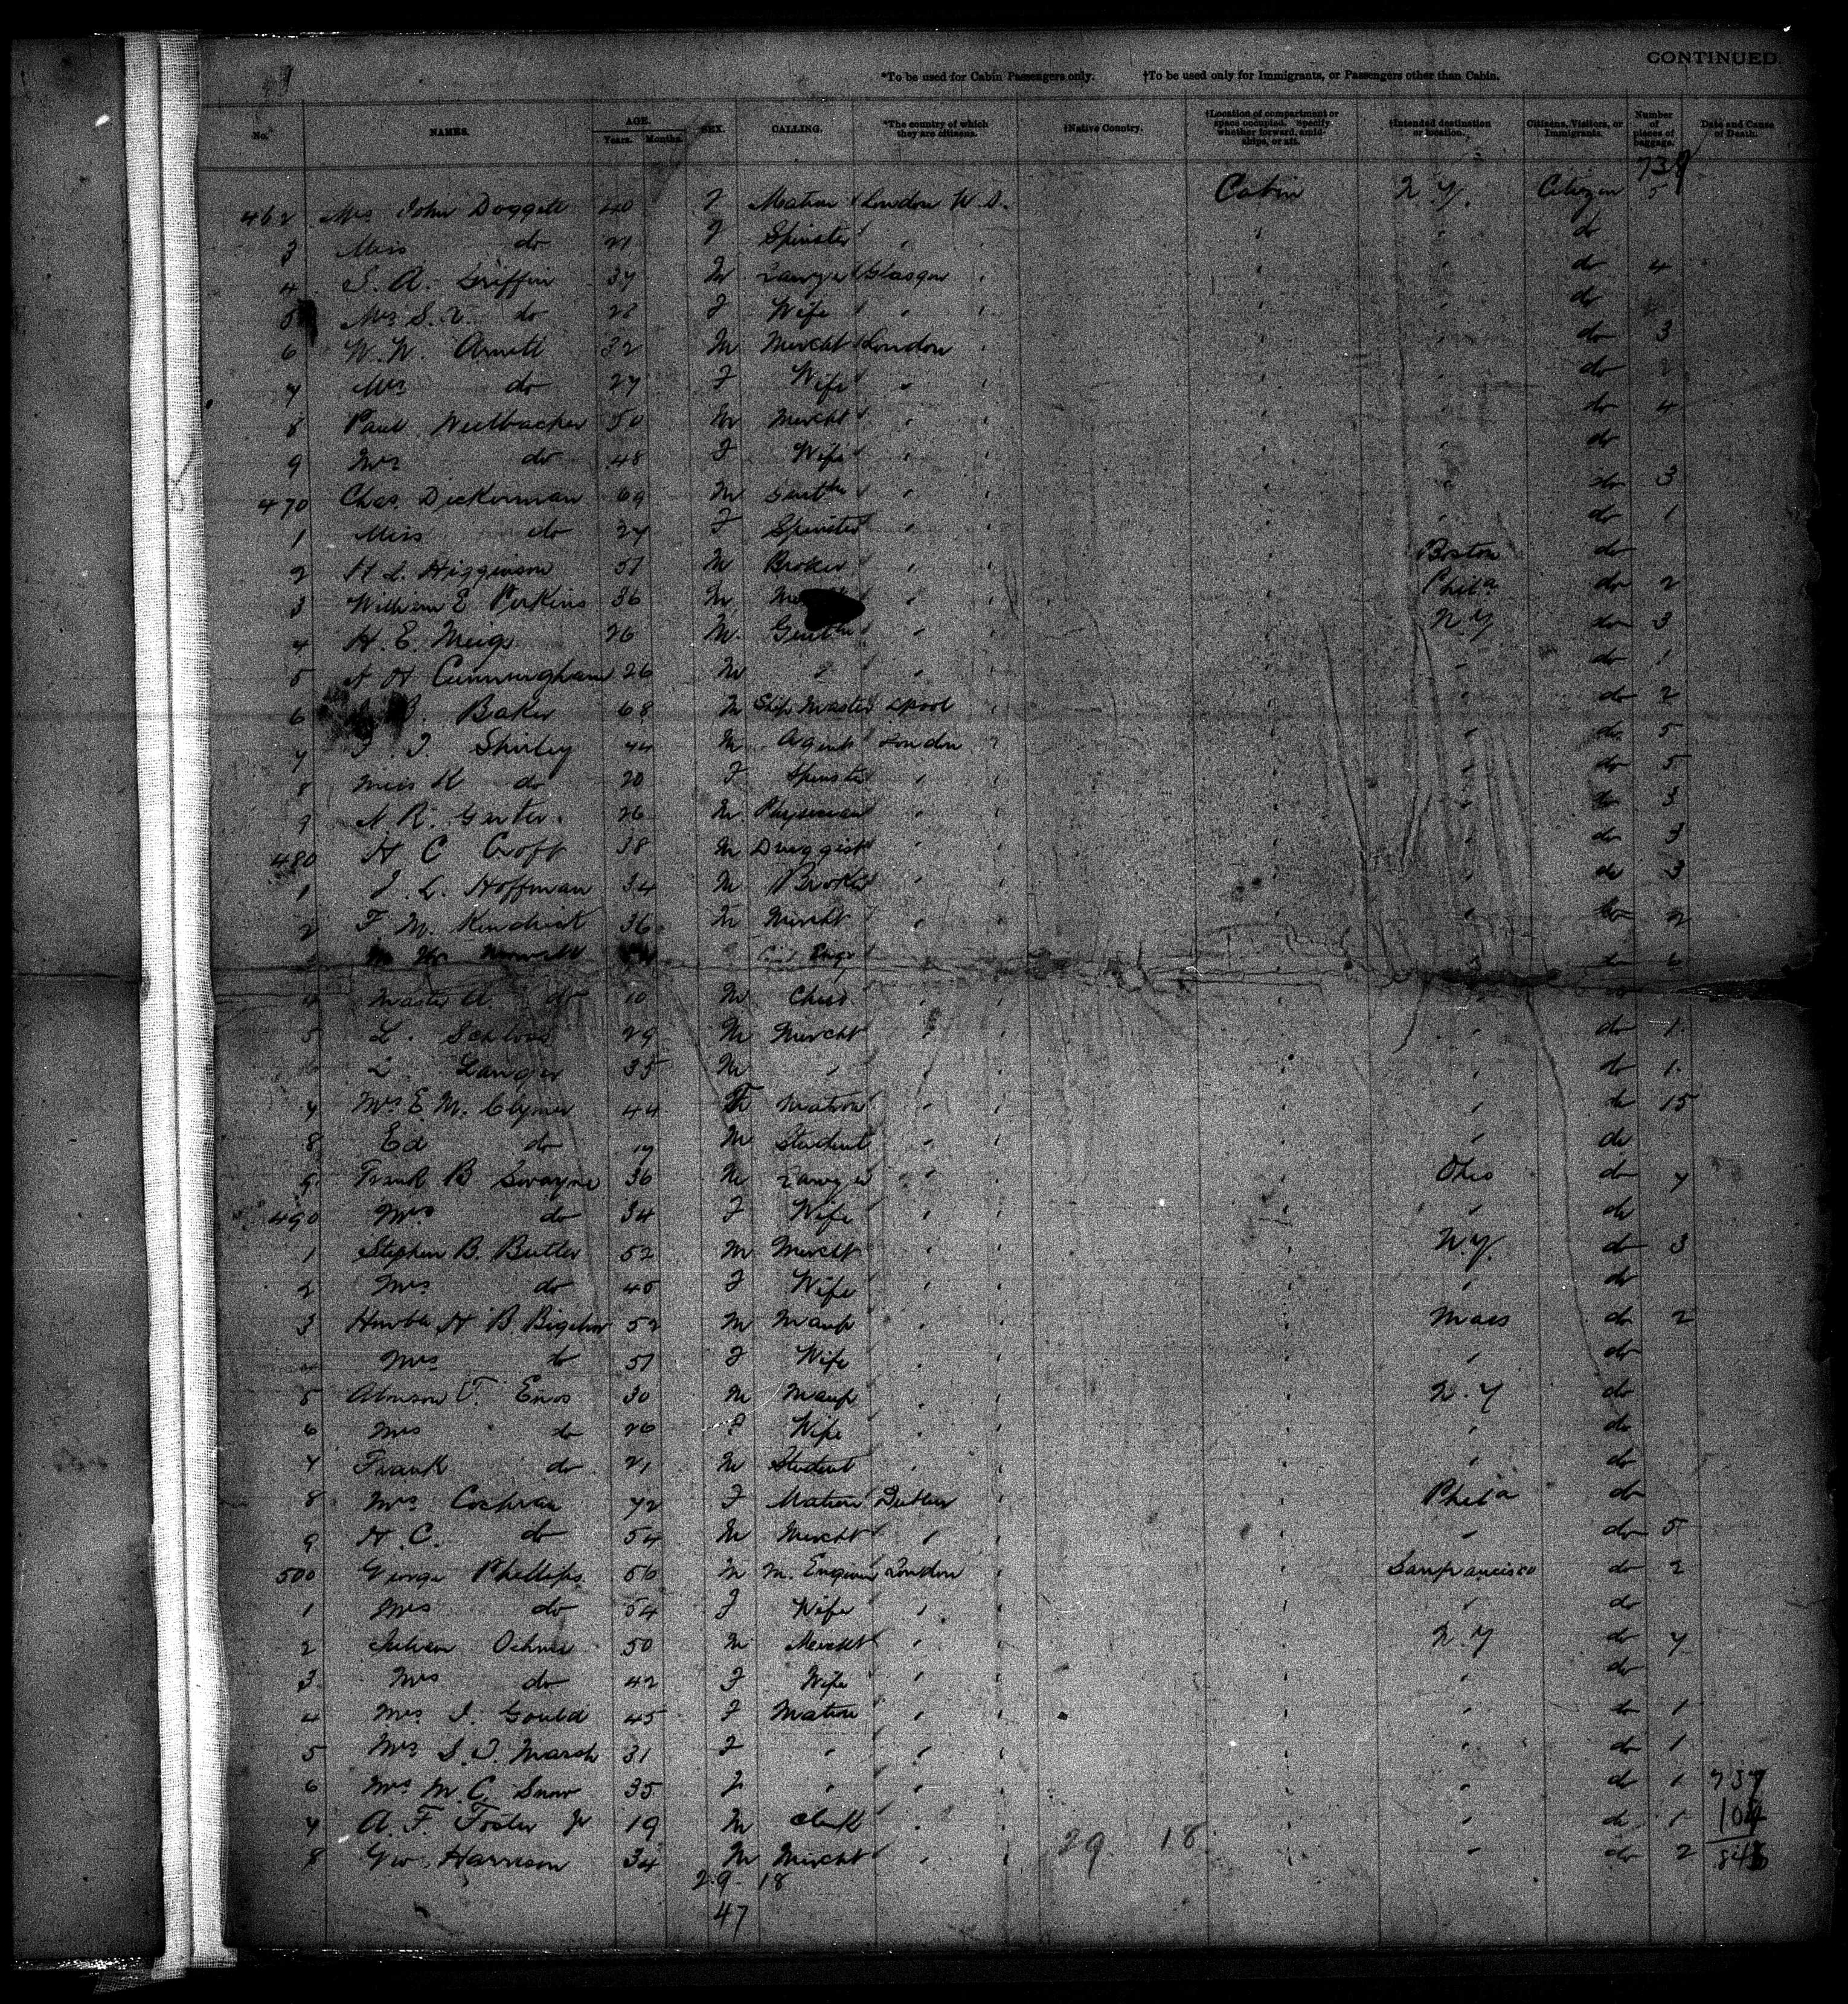 CONTINUED
*To be used for Cabin Passengers only. †To be used only for Immigrants, or Passengers other than Cabin.
No. NAMES. AGE. Years. Months. SEX. CALLING. *The country of which they are citizens. †Native Country. †Location of compartment or space occupied. Specify whether forward, amidships, or aft. †Intended destination or location. Citizens, Visitors, or Immigrants. Number of pieces of baggage. Date and Cause of Death.
739
462 Mrs John Doggett 40 F Matron London W.S. Cabin N.Y. Citizen 5
3 Miss do 21 F Spinster " " " do
4 S. A. Griffin 37 M Lawyer Glasgow " " do 4
5 Mrs S. A. do 28 F Wife " " " do
6 W. W. 32 M Mercht London " " do 3
7 Mrs do 27 F Wife " " " do
8 Paul 50 M Mercht " " " do 4
9 Mrs do 48 F Wife " " " do
470 Chas. Dickerman 69 M Gentln " " " do 3
1 Miss do 27 F Spinster " " " do 1
2 H L. Higginson 51 M Broker " " Boston do
3 William E. Perkins 36 M " " Phila do 2
4 H. E. Meigs 26 M. Gentln " " N.Y do 3
5 Cunningham 26 M " " " " do 1
6 B. Baker 68 M Ship Master Lpool " " do 2
7 Shirley 44 M Agent London " " do 5
8 Miss K do 20 F Spinster " " " do 5
9 A R. Gerter. 26 M Physician " " " do 3
480 H C Croft 38 M Druggist " " " do 3
1 J. L. Hoffman 34 M Broker " " " do 3
2 F. M. Kendrick 36 M Mercht " " " do 2
do 6
4 Master A. do 10 M Child " " "
5 L. Schloss 29 M Mercht " " " do 1
L. Langer 35 M " " " " do 1
7 Mrs E. M. Clymer 44 F Matron " " " do 15
8 Ed do 19 M Student " " " do
9 Frank B Swayne 36 M Lawyer " " Ohio do 7
490 Mrs do 34 F Wife " " " do
1 Stephen B. Butler 52 M Mercht " " N.Y. do 3
2 Mrs do 45 F Wife " " " do
3 Honble H B. Bigelow 52 M Manfr " " Mass do 2
4 Mrs do 51 F Wife " " " do
5 T. Enos 30 M Manfr " " N.Y do
6 Mrs do 26 F Wife " " " do
7 Frank do 21 M Student " " " do
8 Mrs Cochran 72 F Matron Dublin " Phila do
9 H. C. do 54 M Mercht " " " do 5
500 George Phillips 56 M M. Engineer London " Sanfrancisco do 2
1 Mrs do 54 F Wife " " " do
2 50 M Mercht " " N.Y do 7
3 Mrs do 42 F Wife " " " do
4 Mrs J. Gould 45 F Matron " " " do 1
5 Mrs S. J. Marsh 31 F " " " " do 1
6 Mrs M. C. Snow 35 F " " " " do 1 737
7 A. F. Foster Jr 19 M Clerk " " " do 1 104
8 Geo. Harrison 34 M Mercht " 29 18 " " do 2
29 18
47